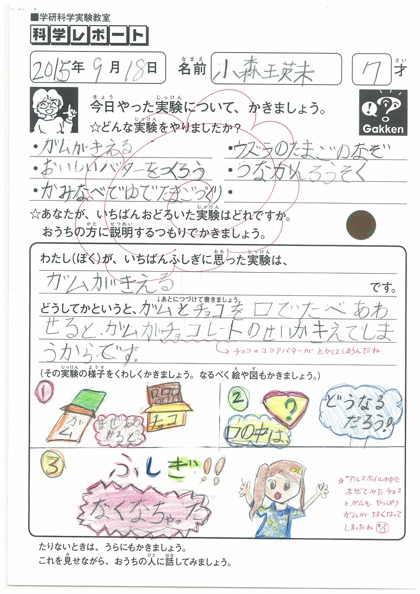 ■学研科学実験教室
科学レポート
2015年9月18日 名前 小森瑛未 7才
今日やった実験について、かきましょう。
☆どんな実験をやりましたか?
・ガムがきえる ・ウズラのたまごのなぞ
・おいしいバターをつくろう ・つなかんろうそく
・かみなべでゆでたまごづくり ・
Gakken
☆あなたが、いちばんおどろいた実験はどれですか。
おうちの方に説明するつもりでかきましょう。
わたし(ぼく)が、いちばんふしぎに思った実験は、
ガムがきえる です。
↓あとにつづけて書きましょう。
どうしてかというと、ガムとチョコを口でたべあわ
せると、ガムがチョコレートのせいかきえてしま
うからです。
→チョコのココアバターがとかしてしまうんだね
(その実験の様子をくわしくかきましょう。なるべく絵や図もかきましょう。)
① ガム チョコ まぜあわせると
② ? 口の中は、 どうなるだろう!
③ ふしぎ!!
なくなちゃった
*アルミホイルの中で
まぜてみたチョコ
とガムも やっぱり
ガムがなくなって
しまったね
たりないときは、うらにもかきましょう。
これを見せながら、おうちの人に話してみましょう。